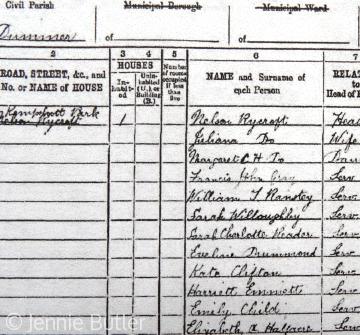 Civil Parish Municipal Borough Municipal Ward
Dummer
2 3 4 5 6 7
HOUSES
ROAD, STREET, &c., and No. or NAME of HOUSE
In-habit-ed
Unin-habited (U.), or Building (B.)
Number of rooms occupied if less than five
NAME and Surname of each Person
RELAT to Head of F
Kempshott Park
Nelson Rycroft 1 Nelson Rycroft Head
Juliana Do Wife
Margaret C H Do Dau
Francis John Gray Serv
William T. Ranstey Serv
Sarah Willoughby Serv
Sarah Charlotte Reader Serv
Eveline Drummond Serv
Kate Clifton Serv
Harriett Emmett Serv
Emily Child Serv
Elizabeth A Halfacre Serv
© Jennie Butler